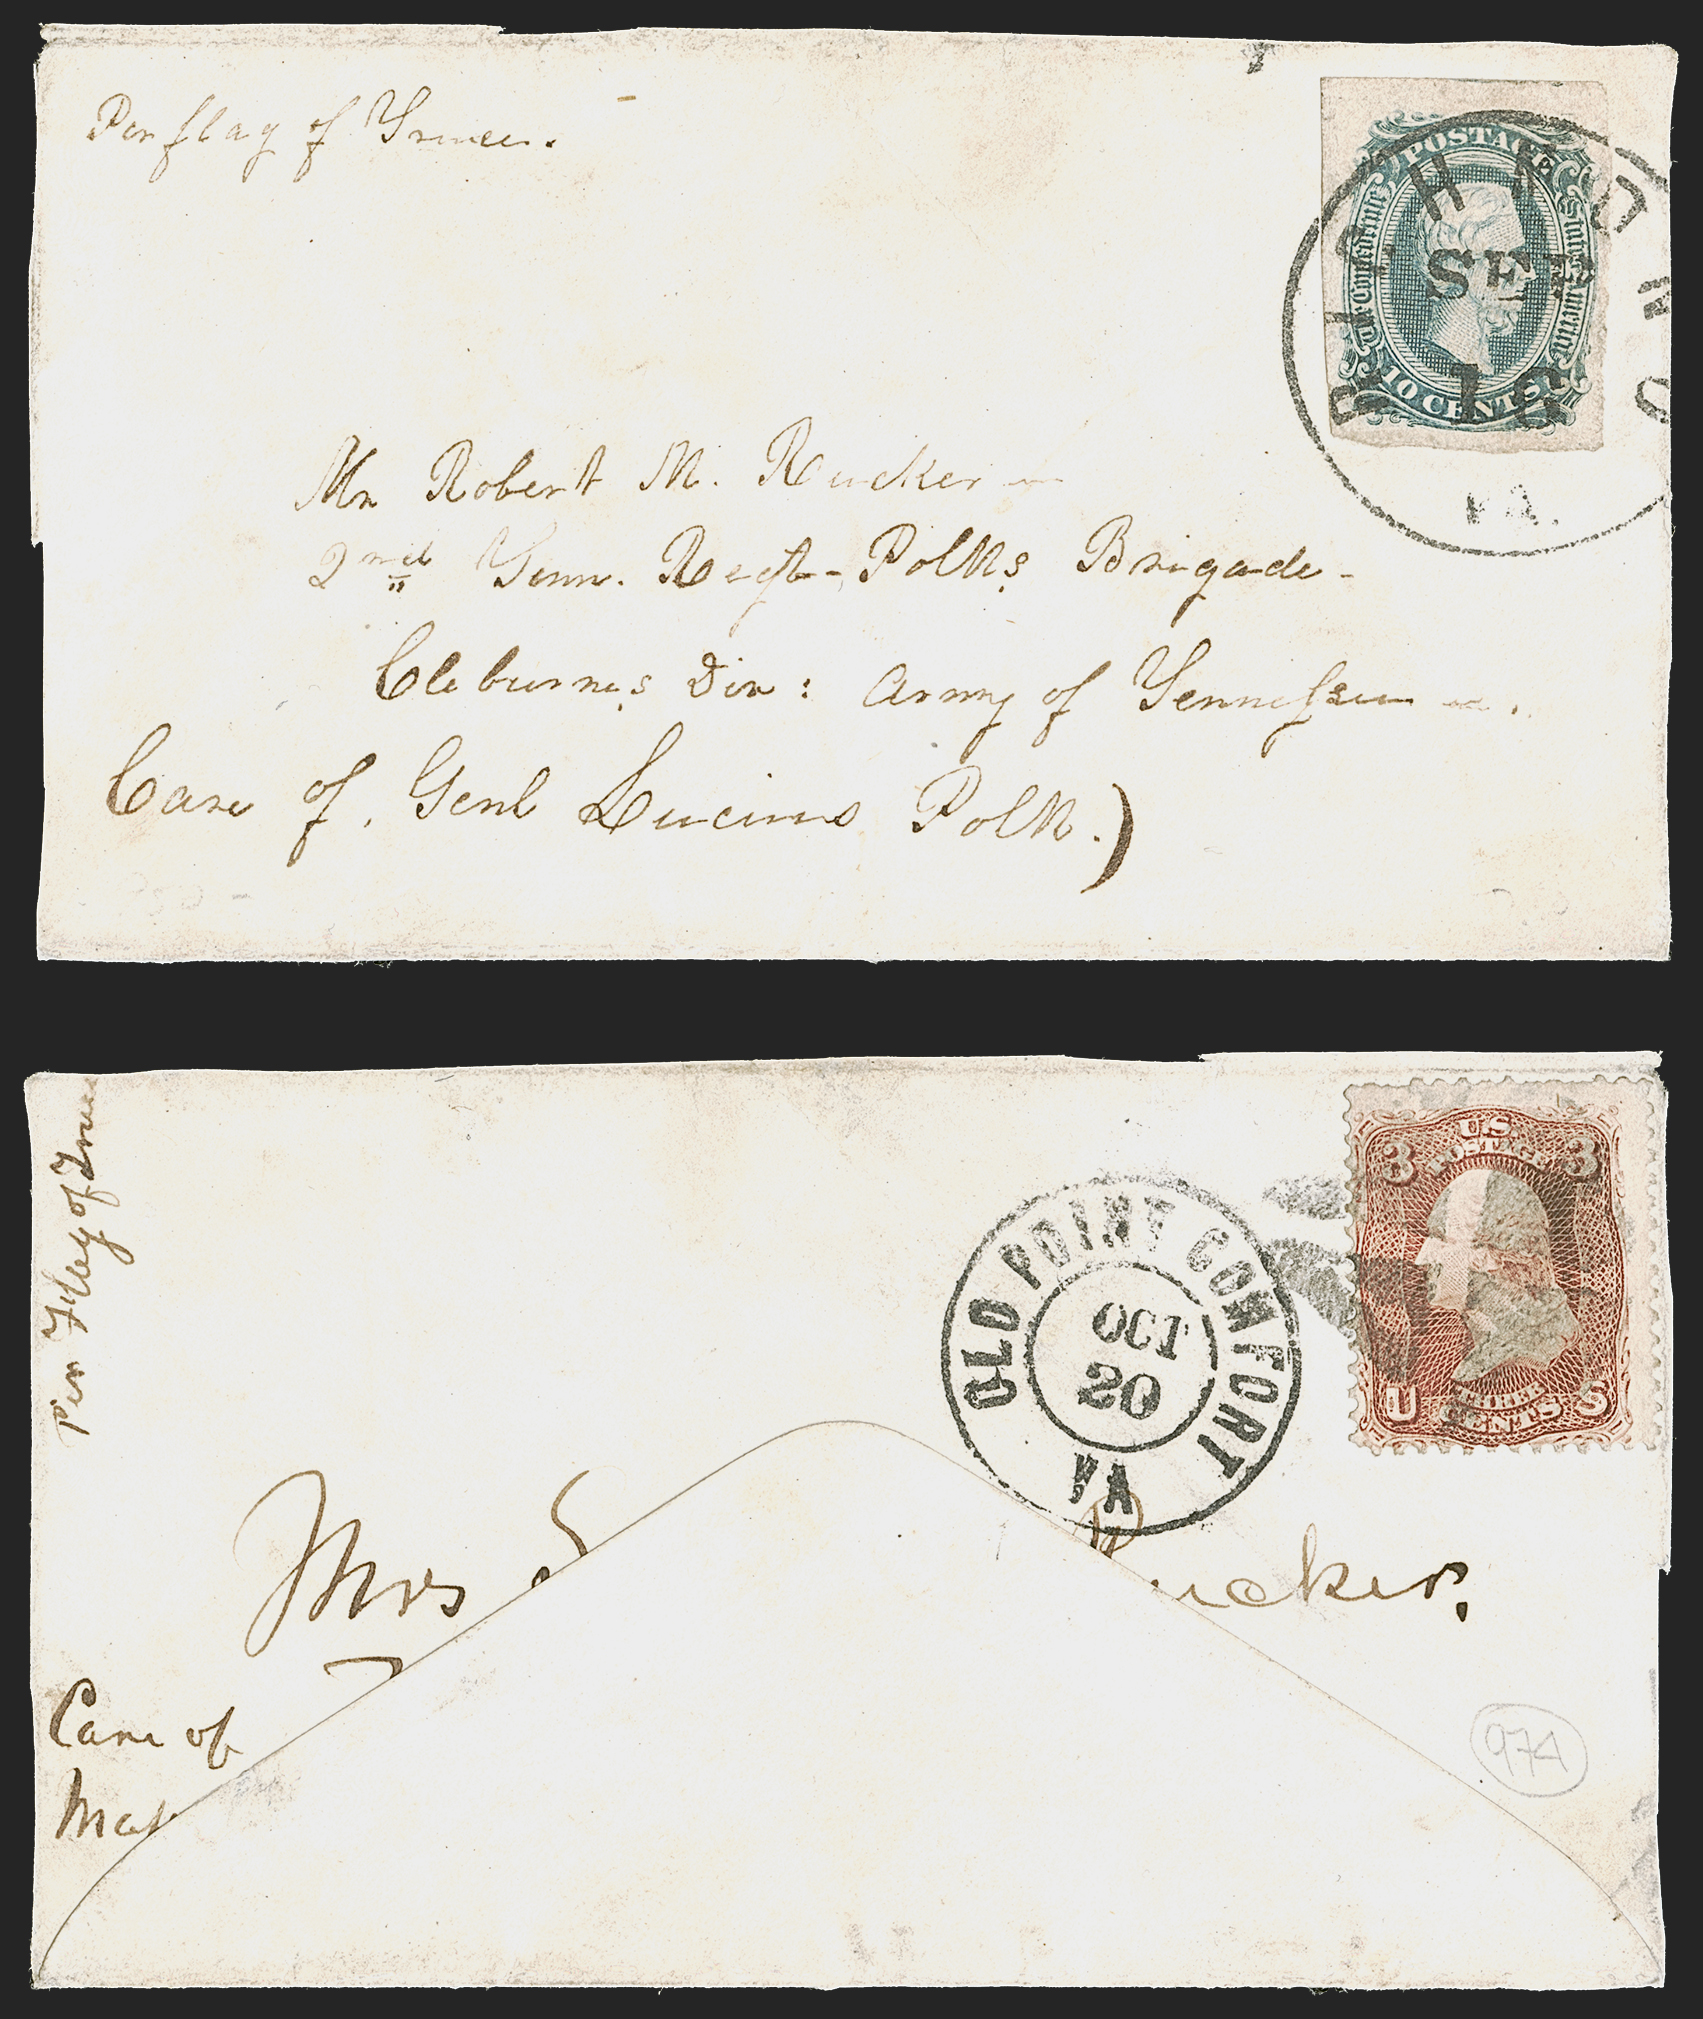 Per flag of Truce.
POSTAGE
The Confederate States of America
10 CENTS
RICHMOND
SEP
16
VA.
Mr Robert M. Rucker
2nd Tenn. Regt - Polk's Brigade -
Cleburne's Div: Army of Tennessee.
Care of. Genl Lucius Polk.)
per Flag of Truce
U.S. POSTAGE
3 3
THREE CENTS
U S
OLD POINT COMFORT
OCT
20
VA
Mrs Rucker,
Care of
974